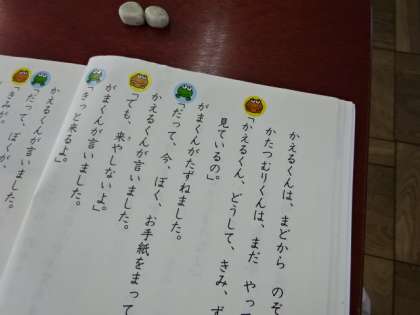 かえるくんは、まどから のぞ
かたつむりくんは、まだ やって
「かえるくん、どうして、きみ、ず
見ているの。」
がまくんがたずねました。
「だって、今、ぼく、お手紙をまって
かえるくんが言いました。
「でも、来やしないよ。」
がまくんが言いました。
「きっと来るよ。」
かえるくんが言いました。
「だって、ぼくが、
「きみが。」